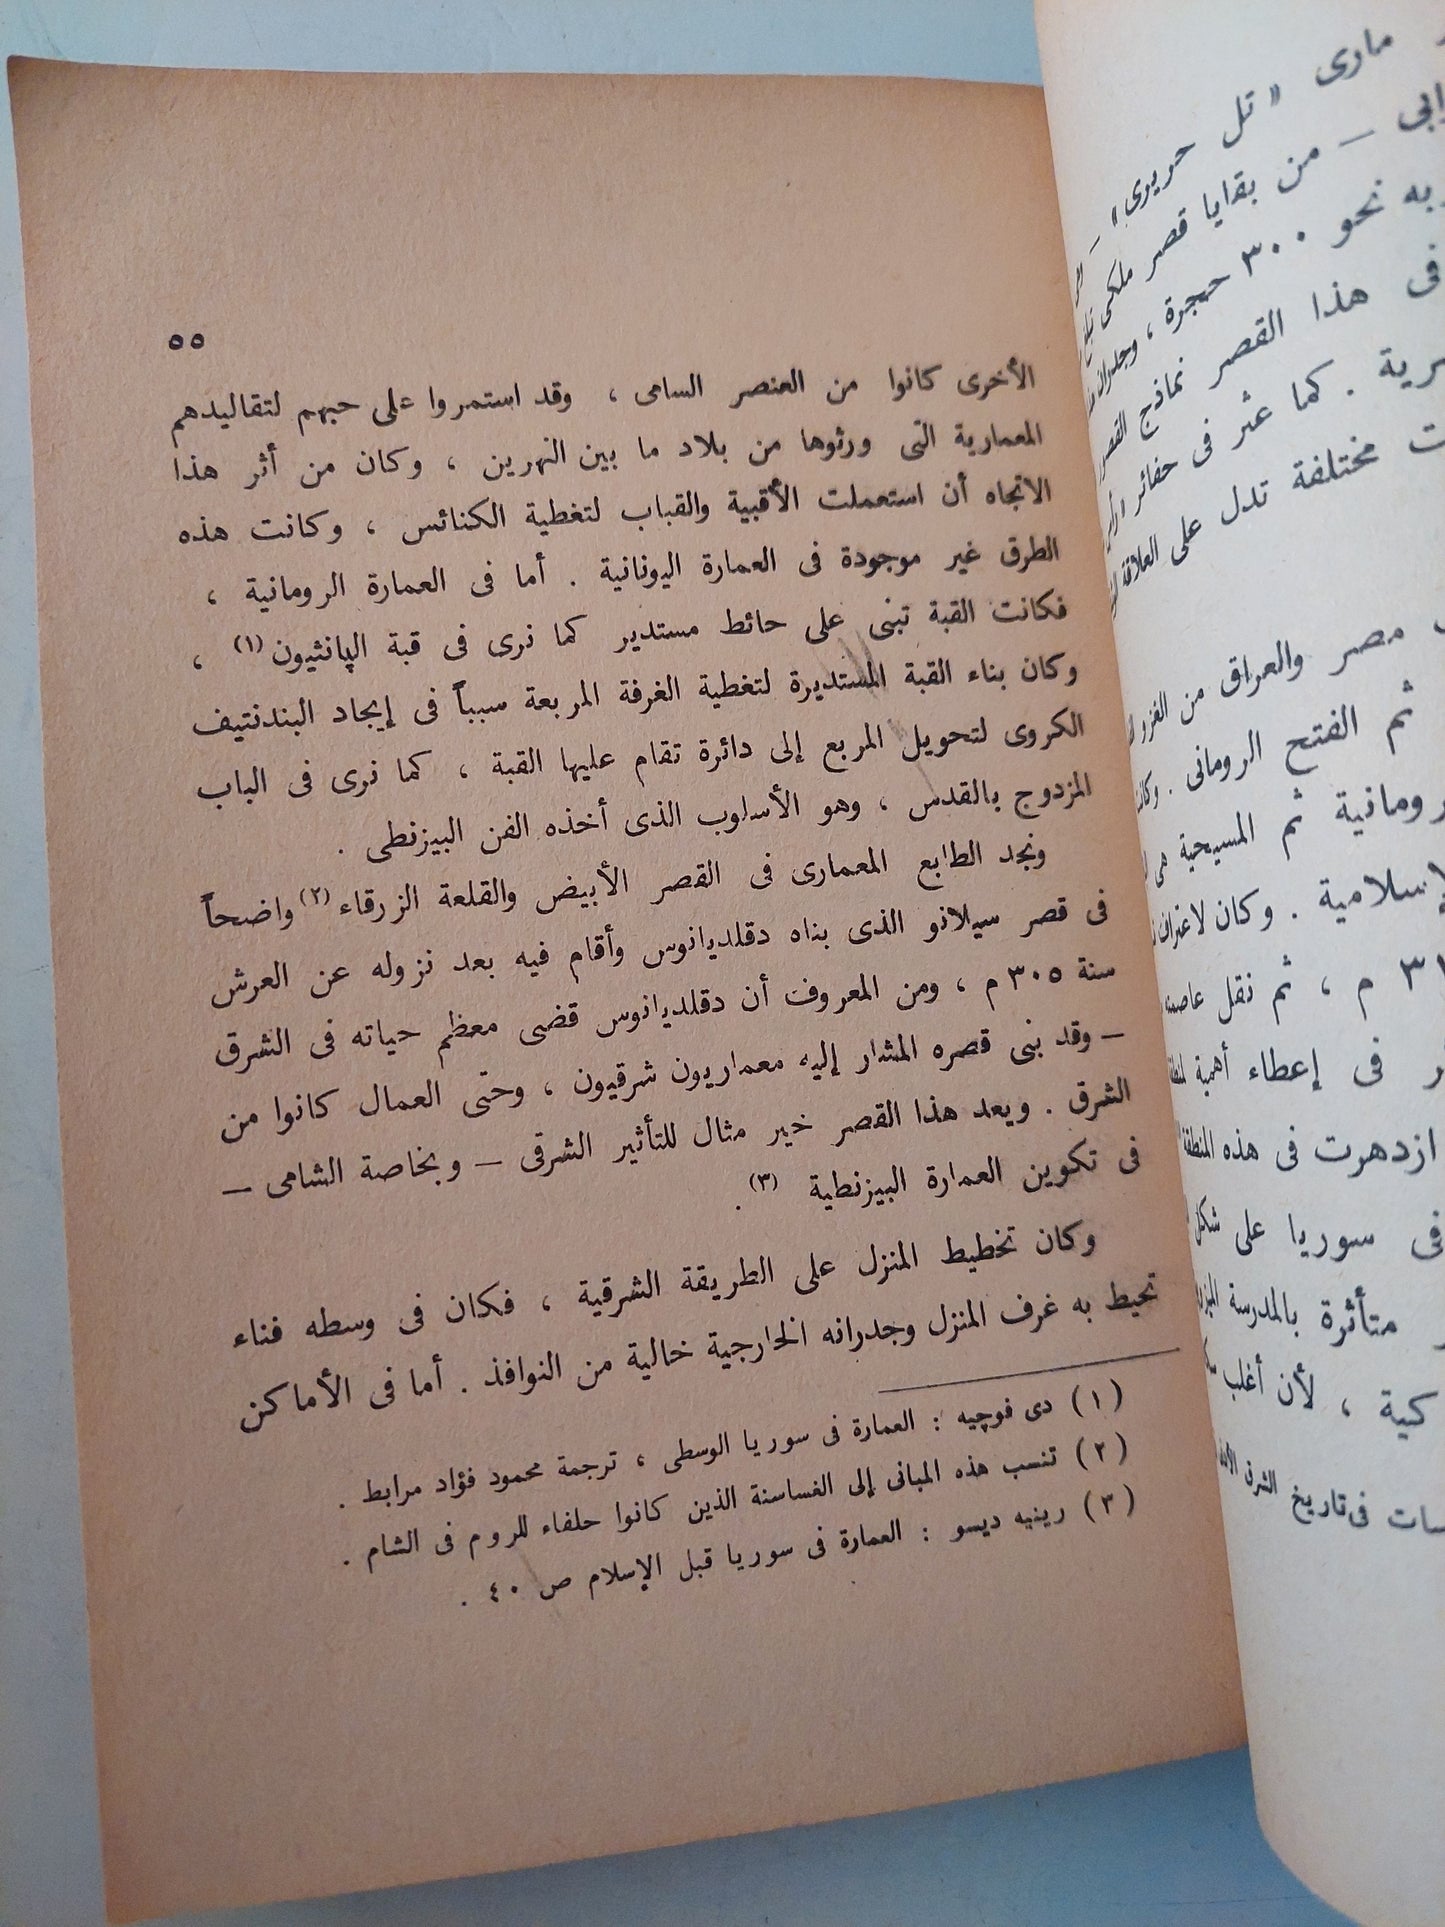 مارى « تل حريرى » –
– من بقايا قصر ملكى
نحو ٣٠٠ حجرة ، وجدران
فى هذا القصر نماذج
. كما عثر فى حفائر
مختلفة تدل على العلاقة
مصر والعراق من الغزو
ثم الفتح الرومانى . وكانت
ثم المسيحية هى
. وكان لاعتراف
م ، ثم نقل عاصمته
فى إعطاء أهمية
ازدهرت فى هذه المنطقة
فى سوريا على شكل
متأثرة بالمدرسة
، لأن أغلب
فى تاريخ الشرق
٥٥
الأخرى كانوا من العنصر السامى ، وقد استمروا على حبهم لتقاليدهم
المعمارية التى ورثوها من بلاد ما بين النهرين ، وكان من أثر هذا
الاتجاه أن استعملت الأقبية والقباب لتغطية الكنائس ، وكانت هذه
الطرق غير موجودة فى العمارة اليونانية . أما فى العمارة الرومانية ،
فكانت القبة تبنى على حائط مستدير كما نرى فى قبة الپانثيون (١) ،
وكان بناء القبة المستديرة لتغطية الغرفة المربعة سبباً فى إيجاد البندنتيف
الكروى لتحويل المربع إلى دائرة تقام عليها القبة ، كما نرى فى الباب
المزدوج بالقدس ، وهو الأسلوب الذى أخذه الفن البيزنطى .
ونجد الطابع المعمارى فى القصر الأبيض والقلعة الزرقاء (٢) واضحاً
فى قصر سپلاتو الذى بناه دقلديانوس وأقام فيه بعد نزوله عن العرش
سنة ٣٠٥ م ، ومن المعروف أن دقلديانوس قضى معظم حياته فى الشرق
– وقد بنى قصره المشار إليه معماريون شرقيون ، وحتى العمال كانوا من
الشرق . ويعد هذا القصر خير مثال للتأثير الشرقى – وبخاصة الشامى –
فى تكوين العمارة البيزنطية (٣) .
وكان تخطيط المنزل على الطريقة الشرقية ، فكان فى وسطه فناء
تحيط به غرف المنزل وجدرانه الخارجية خالية من النوافذ . أما فى الأماكن
(١) دى فوچيه : العمارة فى سوريا الوسطى ، ترجمة محمود فؤاد مرابط .
(٢) تنسب هذه المبانى إلى الغساسنة الذين كانوا حلفاء للروم فى الشام .
(٣) رينيه ديسو : العمارة فى سوريا قبل الإسلام ص ٤٠ .